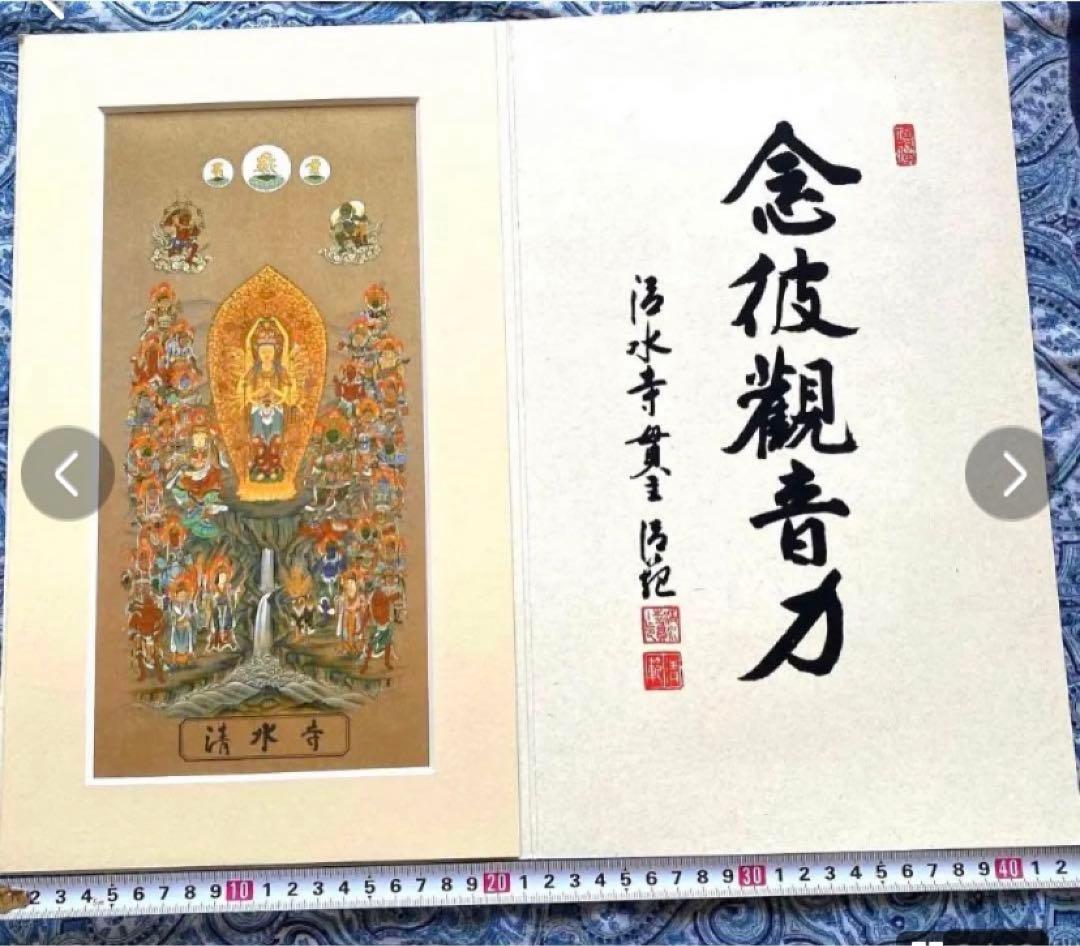 念彼觀音力
清水寺貫主 清範
清水寺
2 3 4 5 6 7 8 9 10 1 2 3 4 5 6 7 8 9 20 1 2 3 4 5 6 7 8 9 30 1 2 3 4 5 6 7 8 9 40 1 2